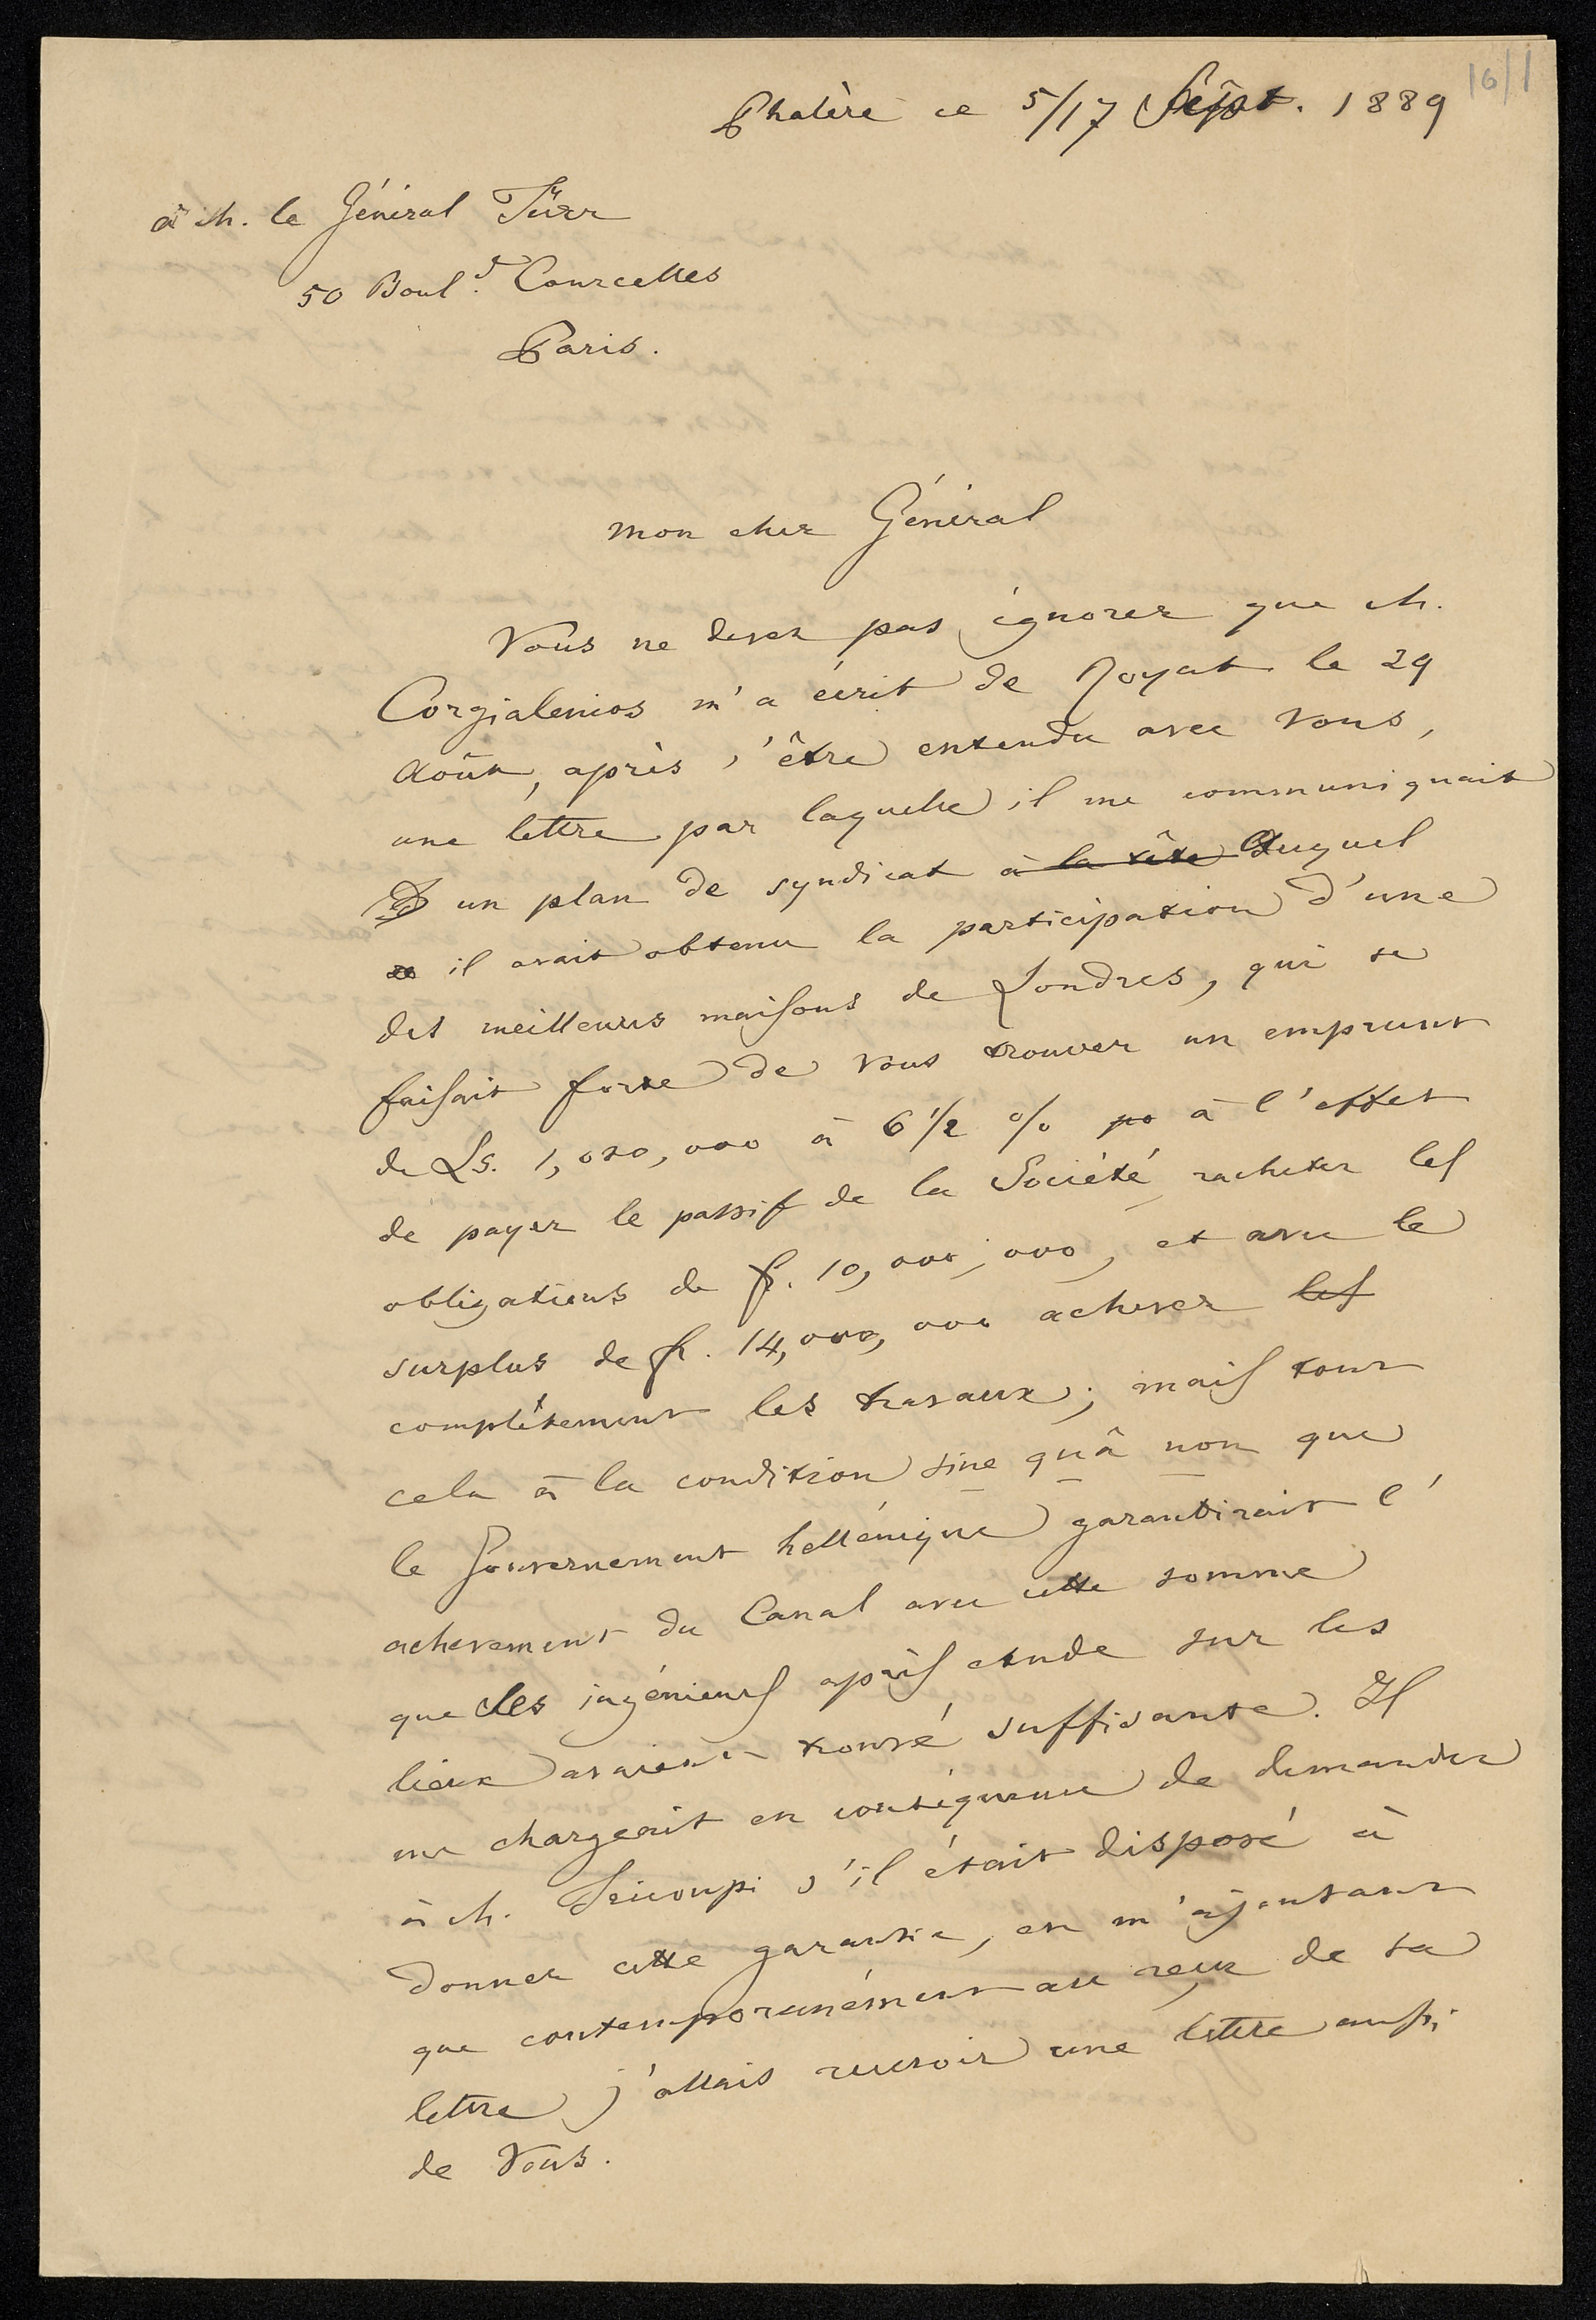 16/1
Phalère ce 5/17 Sept. 1889
à M. le Général Türr
50 Boul.d Courcelles
Paris.
Mon cher Général
Vous ne devez pas ignorer que M.
Corgialenios m'a écrit de Royat le 29
Août, après s'être entendu avec vous,
une lettre par laquelle il me communiquait
un plan de syndicat à la tête duquel
il avait obtenu la participation d'une
des meilleures maisons de Londres, qui se
faisait forte de vous trouver un emprunt
de Ls. 1,020,000 à 6 1/2 % po à l'effet
de payer le passif de la Société, racheter les
obligations de fr. 10,000,000, et avec le
surplus de fr. 14,000,000 achever les
complètement les travaux; mais tout
cela à la condition sine quâ non que
le Gouvernement hellénique garantirait l'
achevement du Canal avec cette somme
que des ingénieurs après etude sur les
lieux avaient trouvé suffisante. Il
me chargeait en conséquence de demander
à M. Tricoupi s'il était disposé à
donner cette garantie, en m'ajoutant
que contemporanément au reçu de sa
lettre j'allais recevoir une lettre aussi
de Vous.